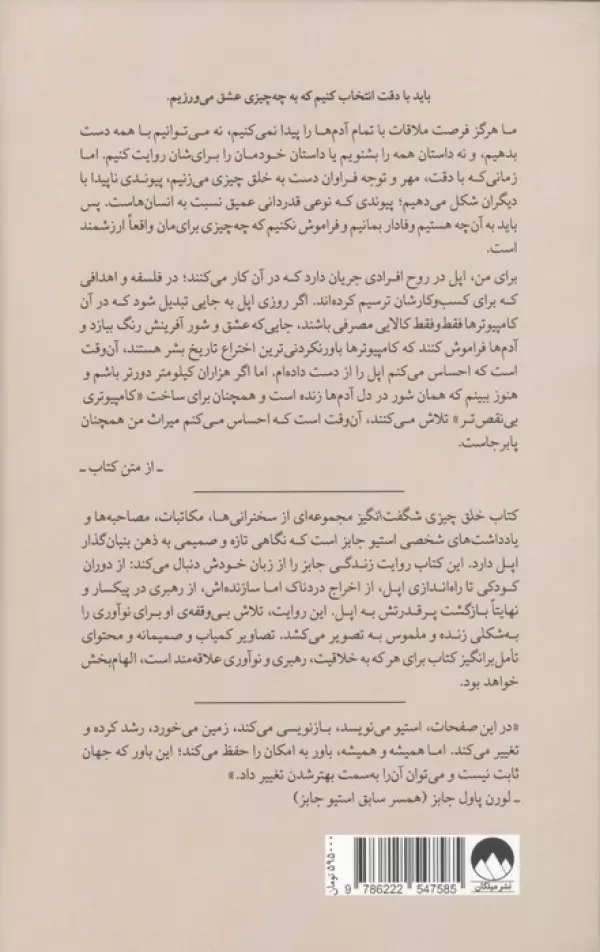 باید با دقت انتخاب کنیم که به چه‌چیزی عشق می‌ورزیم.
ما هرگز فرصت ملاقات با تمام آدم‌ها را پیدا نمی‌کنیم، نه می‌توانیم با همه دست
بدهیم، و نه داستان همه را بشنویم یا داستان خودمان را برای‌شان روایت کنیم. اما
زمانی‌که با دقت، مهر و توجه فراوان دست به خلق چیزی می‌زنیم، پیوندی ناپیدا با
دیگران شکل می‌دهیم؛ پیوندی که نوعی قدردانی عمیق نسبت به انسان‌هاست. پس
باید به آن‌چه هستیم وفادار بمانیم و فراموش نکنیم که چه‌چیزی برای‌مان واقعاً ارزشمند
است.
برای من، اپل در روح افرادی جریان دارد که در آن کار می‌کنند؛ در فلسفه و اهدافی
که برای کسب‌وکارشان ترسیم کرده‌اند. اگر روزی اپل به جایی تبدیل شود که در آن
کامپیوترها فقط‌وفقط کالایی مصرفی باشند، جایی‌که عشق و شور آفرینش رنگ ببازد و
آدم‌ها فراموش کنند که کامپیوترها باورنکردنی‌ترین اختراع تاریخ بشر هستند، آن‌وقت
است که احساس می‌کنم اپل را از دست داده‌ام. اما اگر هزاران کیلومتر دورتر باشم و
هنوز ببینم که همان شور در دل آدم‌ها زنده است و همچنان برای ساخت «کامپیوتری
بی‌نقص‌تر» تلاش می‌کنند، آن‌وقت است که احساس می‌کنم میراث من همچنان
پابرجاست.
ـ از متن کتاب ـ
کتاب خلق چیزی شگفت‌انگیز مجموعه‌ای از سخنرانی‌ها، مکاتبات، مصاحبه‌ها و
یادداشت‌های شخصی استیو جابز است که نگاهی تازه و صمیمی به ذهن بنیان‌گذار
اپل دارد. این کتاب روایت زندگی جابز را از زبان خودش دنبال می‌کند: از دوران
کودکی تا راه‌اندازی اپل، از اخراج دردناک اما سازنده‌اش، از رهبری در پیکسار و
نهایتاً بازگشت پرقدرتش به اپل. این روایت، تلاش بی‌وقفه‌ی او برای نوآوری را
به‌شکلی زنده و ملموس به تصویر می‌کشد. تصاویر کمیاب و صمیمانه و محتوای
تأمل‌برانگیز کتاب برای هر که به خلاقیت، رهبری و نوآوری علاقه‌مند است، الهام‌بخش
خواهد بود.
«در این صفحات، استیو می‌نویسد، بازنویسی می‌کند، زمین می‌خورد، رشد کرده و
تغییر می‌کند. اما همیشه و همیشه، باور به امکان را حفظ می‌کند؛ این باور که جهان
ثابت نیست و می‌توان آن‌را به‌سمت بهترشدن تغییر داد.»
ـ لورن پاول جابز (همسر سابق استیو جابز)
۵۹۵۰۰۰ تومان
9 786222 547585
نشر میلکان